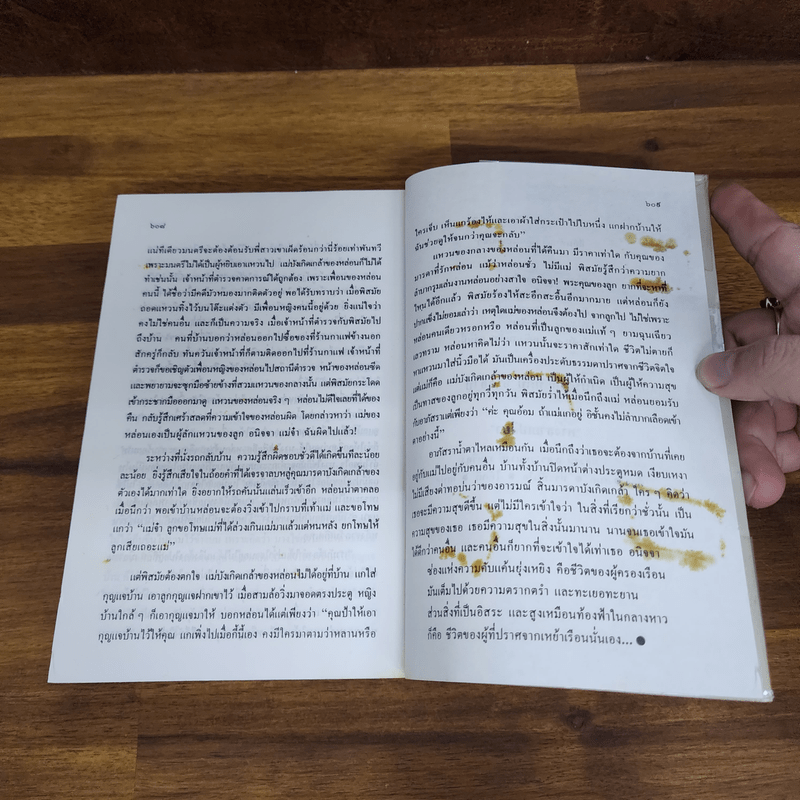 ๖๐๘
แม่ทีเดียวมนตรีจะต้องต้อนรับพี่สาวเขาเผ็ดร้อนกว่านี่ร้อยเท่าพันทวี
เพราะมนตรีไม่ได้เป็นผู้หยิบเอาแหวนไป แม่บังเกิดเกล้าของหล่อนก็ไม่ได้
ทำเช่นนั้น เจ้าหน้าที่ตำรวจคาดการณ์ได้ถูกต้อง เพราะเพื่อนของหล่อน
คนนี้ ได้ชื่อว่ามีคดีมัวหมองมากติดตัวอยู่ พอได้รับทราบว่า เมื่อพิสมัย
ถอดแหวนทิ้งไว้บนโต๊ะแต่งตัว มีเพื่อนหญิงคนนี้อยู่ด้วย ยิ่งแน่ใจว่า
คงไม่ใช่คนอื่น และก็เป็นความจริง เมื่อเจ้าหน้าที่ตำรวจกับพิสมัยไป
ถึงบ้าน คนที่บ้านบอกว่าหล่อนออกไปซื้อของที่ร้านกาแฟข้างนอก
สักครู่ก็กลับ ทันควันเจ้าหน้าที่ก็ตามติดออกไปที่ร้านกาแฟ เจ้าหน้าที่
ตำรวจก็ขอเชิญตัวเพื่อนหญิงของหล่อนไปสถานีตำรวจ หน้าของหล่อนซีด
และพยายามจะซุกมือซ้ายข้างที่สวมแหวนของกลางนั้น แต่พิสมัยกระโดด
เข้ากระชากมือออกมาดู แหวนของหล่อนจริง ๆ หล่อนไม่ดีใจเลยที่ได้ของ
คืน กลับรู้สึกเศร้าสลดที่ความเข้าใจของหล่อนผิด โดยกล่าวหาว่า แม่ของ
หล่อนเองเป็นผู้ลักแหวนของลูก อนิจจา แม่จ๋า ฉันผิดไปแล้ว!
ระหว่างที่นั่งรถกลับบ้าน ความรู้สึกผิดชอบชั่วดีได้เกิดขึ้นทีละน้อย
ละน้อย ยิ่งรู้สึกเสียใจในถ้อยคำที่ได้เจรจาลบหลู่คุณมารดาบังเกิดเกล้าของ
ตัวเองได้มากเท่าใด ยิ่งอยากให้รถคันนั้นแล่นเร็วเข้าอีก หล่อนน้ำตาคลอ
เมื่อนึกว่า พอเข้าบ้านหล่อนจะต้องวิ่งเข้าไปกราบที่เท้าแม่ และขอโทษ
แกว่า “แม่จ๋า ลูกขอโทษแม่ที่ได้ล่วงเกินแม่มาแล้วแต่หนหลัง ยกโทษให้
ลูกเสียเถอะแม่”
แต่พิสมัยต้องตกใจ แม่บังเกิดเกล้าของหล่อนไม่ได้อยู่ที่บ้าน แกใส่
กุญแจบ้าน เอาลูกกุญแจฝากเขาไว้ เมื่อสามล้อวิ่งมาจอดตรงประตู หญิง
บ้านใกล้ ๆ ก็เอากุญแจมาให้ บอกหล่อนได้แต่เพียงว่า “คุณป้าให้เอา
กุญแจบ้านไว้ให้คุณ แกเพิ่งไปเมื่อกี้นี้เอง คงมีใครมาตามว่าหลานหรือ
๖๐๙
ใครเจ็บ เห็นแกร้องไห้และเอาผ้าใส่กระเป๋าไปใบหนึ่ง แกฝากบ้านให้
ฉันช่วยดูให้จนกว่าคุณจะกลับ”
แหวนของกลางของหล่อนที่ได้คืนมา มีราคาเท่าใด กับคุณของ
มารดาที่รักหล่อน แม้ว่าหล่อนชั่ว ไม่มีแม่ พิสมัยรู้สึกว่าความยาก
ลำบากรุมเล่นงานหล่อนอย่างสาใจ อนิจจา! พระคุณของลูก ยากที่จะหาที่
ไหนได้อีกแล้ว พิสมัยร้องไห้สะอึกสะอื้นอีกมากมาย แต่หล่อนก็ยัง
ปากแข็งไม่ยอมเล่าว่า เหตุใดแม่ของหล่อนจึงต้องไป จากลูกไป ไม่ใช่เพราะ
หล่อนคนเดียวหรอกหรือ หล่อนที่เป็นลูกของแม่แท้ ๆ ยามฉุนเฉียว
เลวทราม หล่อนหาคิดไม่ว่า แหวนนั้นจะราคาสักเท่าใด ชีวิตไม่ตายก็
หาแหวนมาใส่นิ้วมือได้ มันเป็นเครื่องประดับธรรมดาปราศจากชีวิตจิตใจ
แต่แม่ก็คือ แม่บังเกิดเกล้าของหล่อน เป็นผู้ให้กำเนิด เป็นผู้ให้ความสุข
เป็นทาสของลูกอยู่ทุกวี่ทุกวัน พิสมัยร่ำไห้เมื่อนึกถึงแม่ หล่อนยอมรับ
กับอาภัสราแต่เพียงว่า “ค่ะ คุณอ้อม ถ้าแม่แกอยู่ อิชั้นคงไม่ลำบากเลือดเข้า
ตาอย่างนี้”
อาภัสราน้ำตาไหลเหมือนกัน เมื่อนึกถึงว่าเธอจะต้องจากบ้านที่เคย
อยู่กับแม่ไปอยู่กับคนอื่น บ้านทั้งบ้านปิดหน้าต่างประตูหมด เงียบเหงา
ไม่มีเสียงด่าทอบ่นว่าของอารมณ์ สิ้นมารดาบังเกิดเกล้า ใคร ๆ คิดว่า
เธอจะมีความสุขดีขึ้น แต่ไม่มีใครเข้าใจว่า ในสิ่งที่เรียกว่าชั่วนั้น เป็น
ความสุขของเธอ เธอมีความสุขในสิ่งนั้นมานาน นานจนเธอเข้าใจมัน
ได้ดีกว่าคนอื่น และคนอื่นก็ยากที่จะเข้าใจได้เท่าเธอ อนิจจา
ช่องแห่งความคับแค้นยุ่งเหยิง คือชีวิตของผู้ครองเรือน
มันเต็มไปด้วยความตรากตรำ และทะเยอทะยาน
ส่วนสิ่งที่เป็นอิสระ และสูงเหมือนท้องฟ้าในกลางหาว
ก็คือ ชีวิตของผู้ที่ปราศจากเหย้าเรือนนั่นเอง... ●